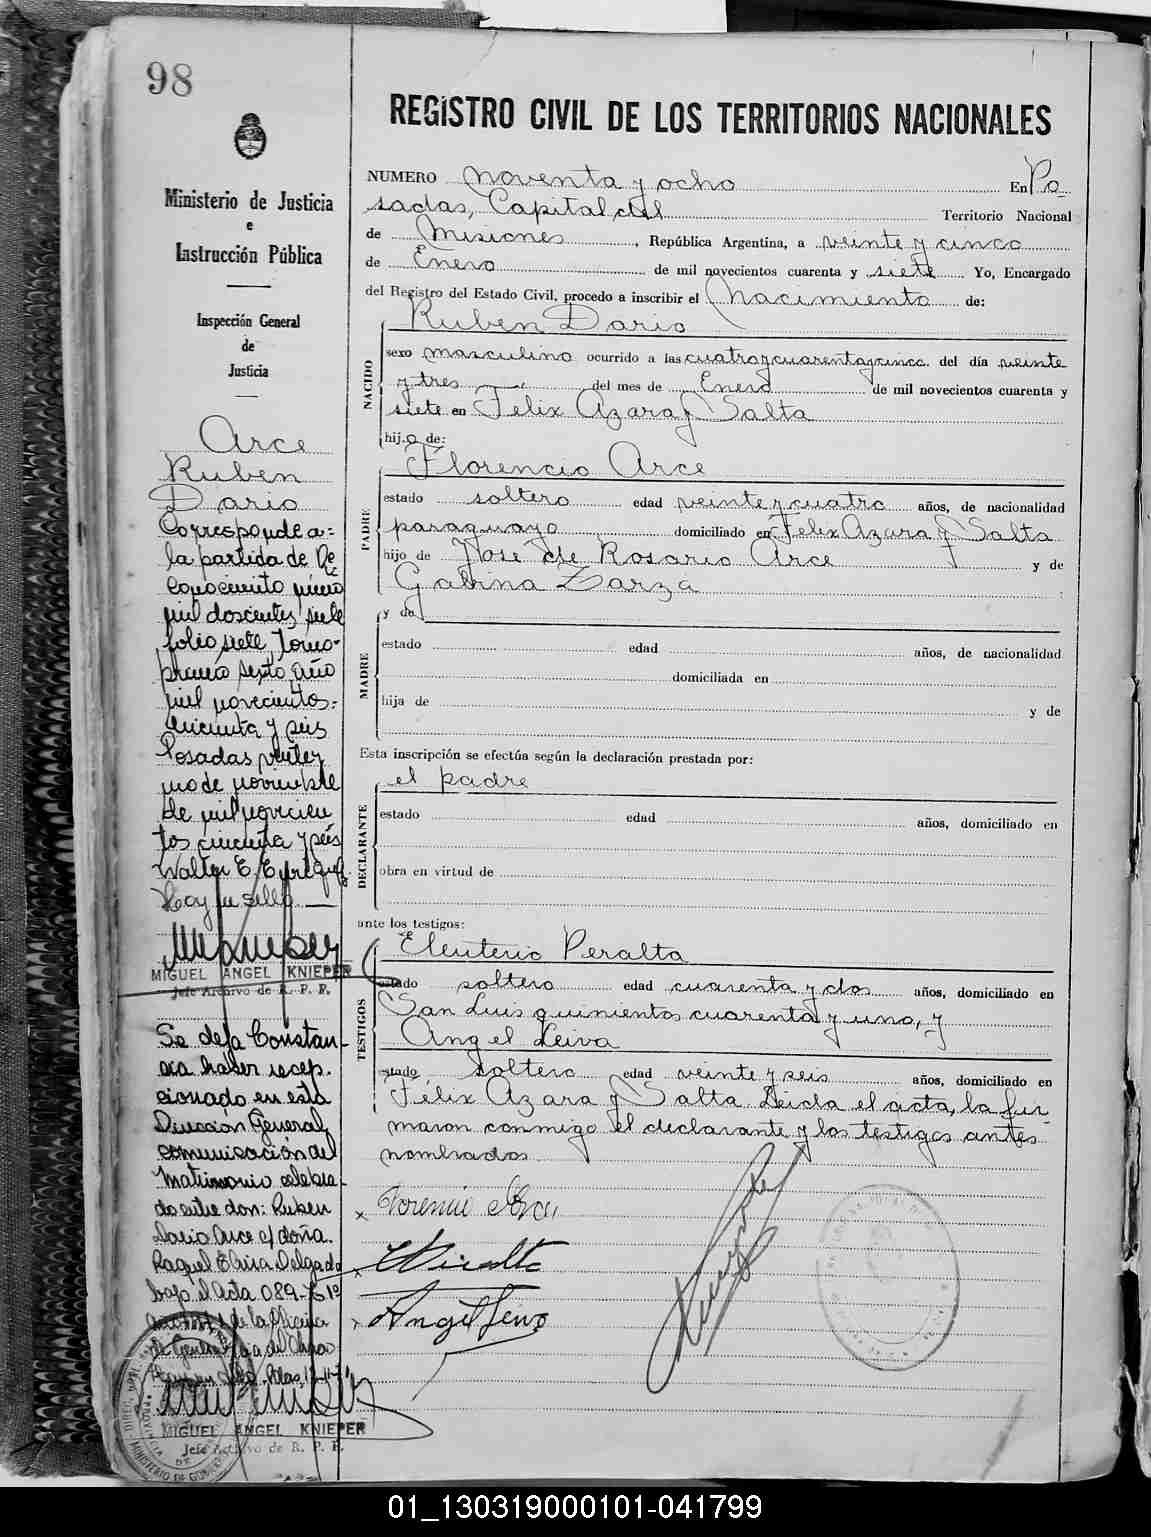 98
REGISTRO CIVIL DE LOS TERRITORIOS NACIONALES
Ministerio de Justicia
e
Instrucción Pública
Inspección General
de
Justicia
Arce
Ruben
Dario
Corresponde a=
la partida de Re
conocimiento número
mil doscientos siete
folio siete, Tomo-
primero sexto año
mil novecientos=
cincuenta y seis
Posadas, veintey
uno de noviembre
de mil novecien
tos cincuenta y seis
Walter E.
Hay un sello
MIGUEL ANGEL KNIEPER
Jefe Archivo de R. P. P.
Se deja Constan-
cia haber recep.
cionado en esta
Dirección General,
comunicación del
Matrimonio celebra-
do entre don: Ruben
Dario Arce c/ doña.
Raquel Elvira Delgado
bajo el Acta 089-T 1º
de la Oficina
de
MIGUEL ANGEL KNIEPER
Jefe Archivo de R. P. P.
NUMERO noventa y ocho En Po
sadas, Capital del Territorio Nacional
de Misiones, República Argentina, a veinte y cinco
de Enero de mil novecientos cuarenta y siete Yo, Encargado
del Registro del Estado Civil, procedo a inscribir el Nacimiento de:
NACIDO
Ruben Dario
sexo masculino ocurrido a las cuatro y cuarenta y cinco del día veinte
y tres del mes de Enero de mil novecientos cuarenta y
siete en Félix Azara y Salta
hijo de:
PADRE
Florencio Arce
estado soltero edad veinte y cuatro años, de nacionalidad
paraguayo domiciliado en Felix Azara y Salta
hijo de José de Rosario Arce y de
Gabina Zarza
MADRE
y de
estado edad años, de nacionalidad
domiciliada en
hija de y de
Esta inscripción se efectúa según la declaración prestada por:
DECLARANTE
el padre
estado edad años, domiciliado en
obra en virtud de
ante los testigos:
TESTIGOS
Eleuterio Peralta
estado soltero edad cuarenta y dos años, domiciliado en
San Luis quinientos cuarenta y uno, y
Angel Leiva
estado soltero edad veinte y seis años, domiciliado en
Félix Azara y Salta. Leida el acta, la fir
maron conmigo el declarante y los testigos antes
nombrados.
x Florencio Arce
Angel Leiva
01_130319000101-041799